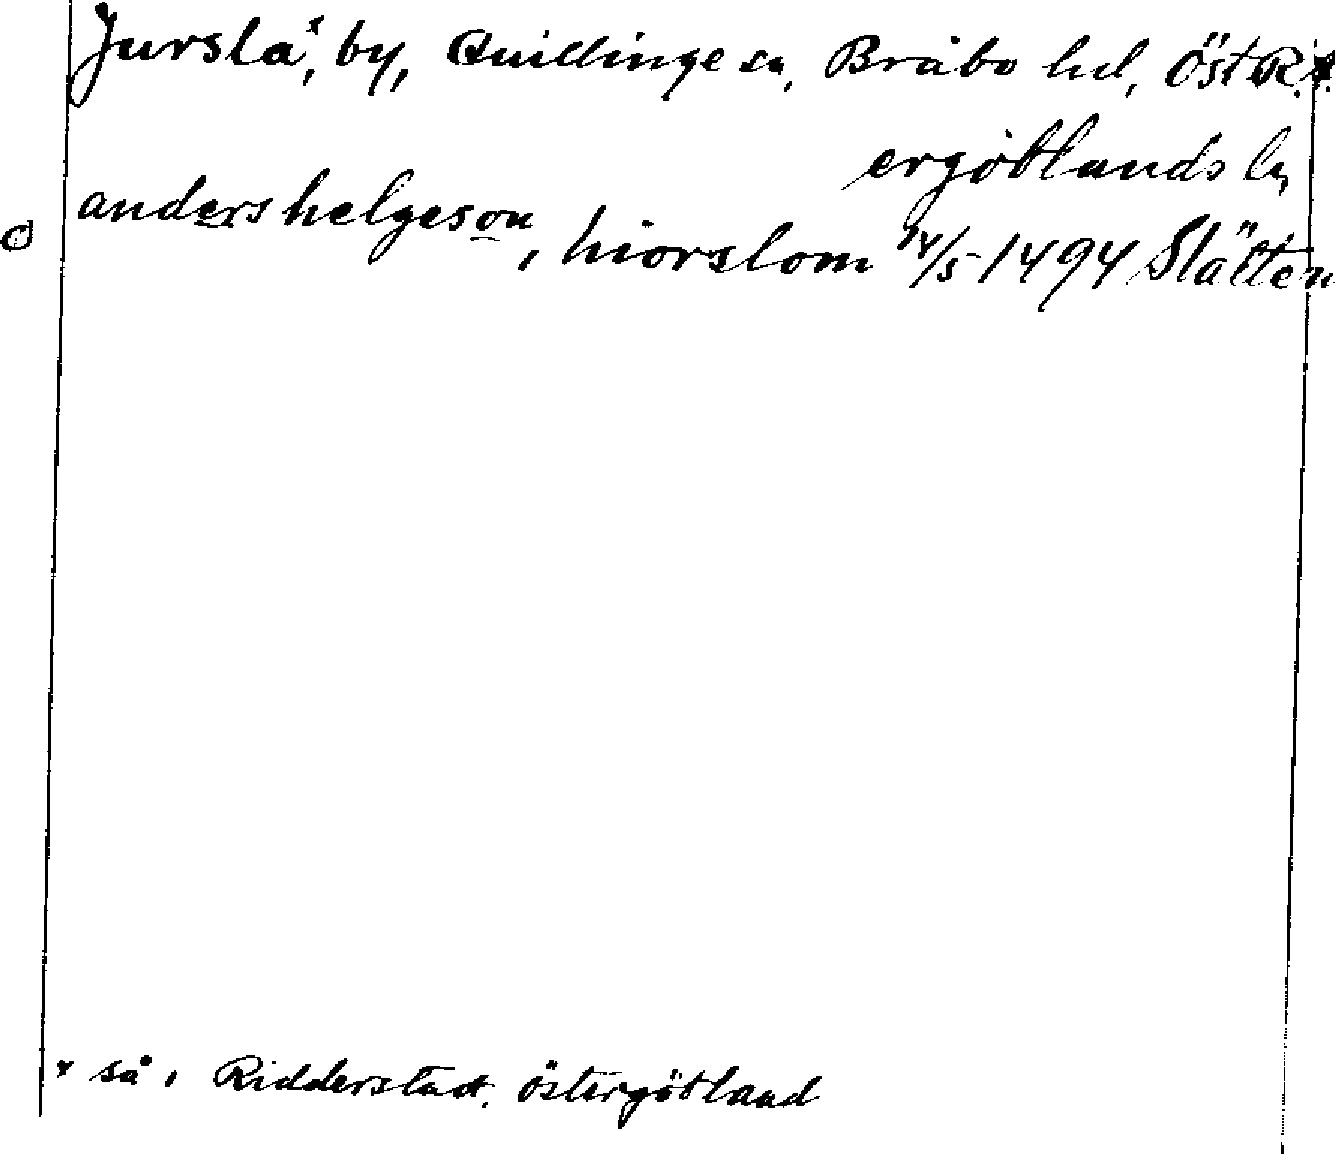 Jursla,ˣ by, Quillinge sn, Bråbo hd, Öst R.A.
ergötlands ln
anders helgeson, hiorslom 14/5 1494 Slätten
x så i Ridderstad, Östergötland